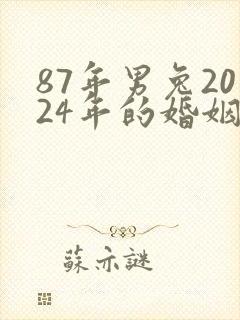 87年男兔20
24年的婚姻
蘇亦謎